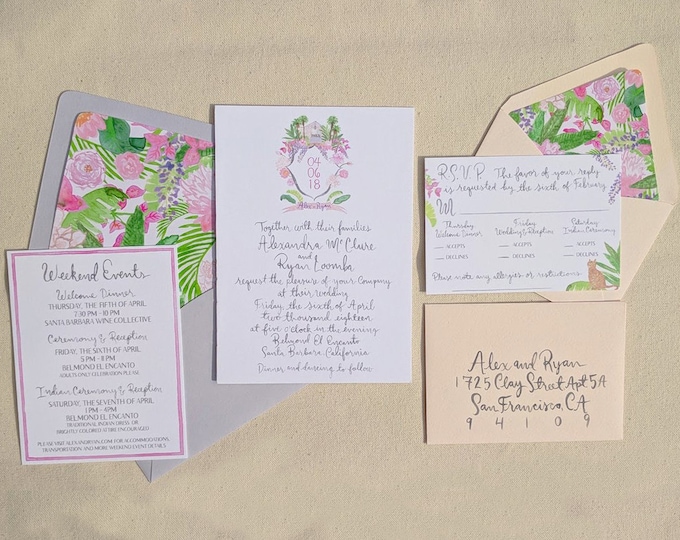 Weekend Events
Welcome Dinner
THURSDAY, THE FIFTH OF APRIL
7:30 PM - 10 PM
SANTA BARBARA WINE COLLECTIVE
Ceremony & Reception
FRIDAY, THE SIXTH OF APRIL
5 PM - 11 PM
BELMOND EL ENCANTO
(ADULTS ONLY CELEBRATION PLEASE)
Indian Ceremony & Reception
SATURDAY, THE SEVENTH OF APRIL
1 PM - 4PM
BELMOND EL ENCANTO
TRADITIONAL INDIAN DRESS OR
BRIGHTLY COLORED ATTIRE ENCOURAGED
PLEASE VISIT ALEXANDRYAN.COM FOR ACCOMMODATIONS,
TRANSPORTATION AND MORE WEEKEND EVENT DETAILS
04
06
18
Alex & Ryan
Together with their families
Alexandra McClure
and
Ryan Loomba
request the pleasure of your company
at their wedding
Friday, the sixth of April
two thousand eighteen
at five o'clock in the evening
Belmond El Encanto
Santa Barbara, California
Dinner and dancing to follow
R.S.V.P. The favor of your reply
is requested by the sixth of February
M
Thursday
Welcome Dinner
ACCEPTS
DECLINES
Friday
Wedding & Reception
ACCEPTS
DECLINES
Saturday
Indian Ceremony
ACCEPTS
DECLINES
Please note any allergies or restrictions
Alex and Ryan
1725 Clay Street Apt 5A
San Francisco, CA
94109